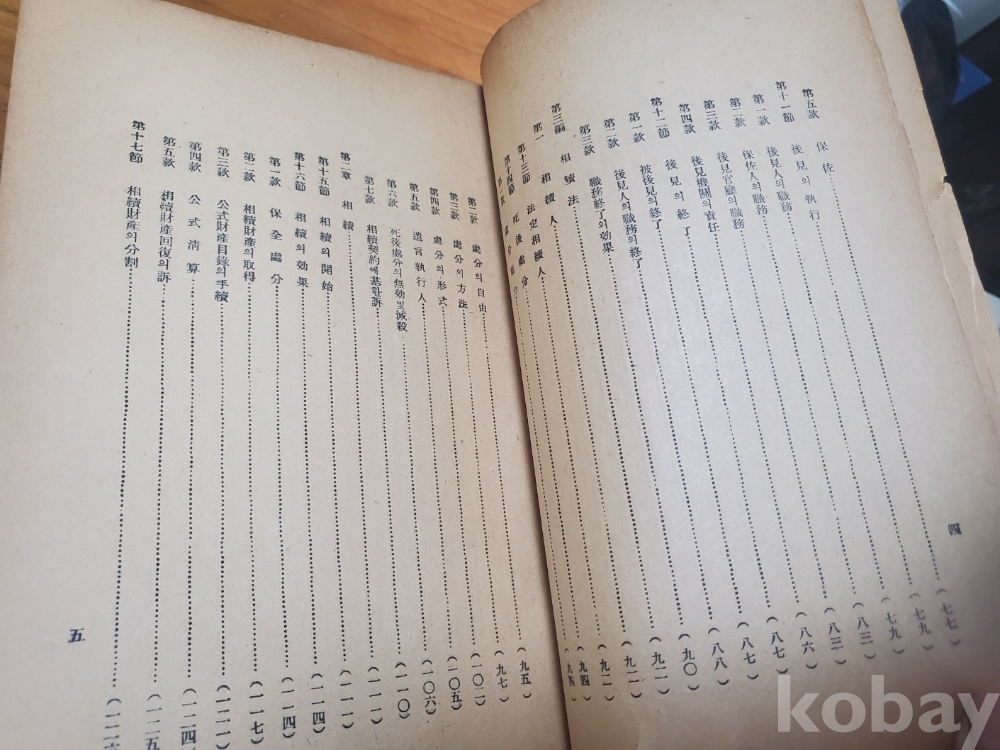 第五款 保佐……(七七)
第十一節 後見의 執行……(七九)
第一款 後見人의 職務……(七九)
第二款 保佐人의 職務……(八三)
第三款 後見官廳의 職務……(八三)
第四款 後見機關의 責任……(八六)
第十二節 後見의 終了……(八七)
第一款 被後見의 終了……(八七)
第二款 後見人의 職務의 終了……(八八)
第三款 職務終了의 効果……(九〇)
第三編 相續法……(九二)
第一 相續人……(九二)
第十三節 法定相續人……(九二)
第十四節 死後處分……(九四)
(九四)
四
第二款 處分의 自由……(九五)
第三款 處分의 方法……(九七)
第四款 處分의 形式……(一〇二)
第五款 遺言執行人……(一〇五)
第六款 死後處分의 無効및減殺……(一〇六)
第七款 相續契約에基한訴……(一一〇)
第二章 相續……(一一一)
第十五節 相續의 開始……(一一一)
第十六節 相續의 効果……(一一四)
第一款 保全處分……(一一四)
第二款 相續財產의 取得……(一一七)
第三款 公式財產目錄의 手續……(一二一)
第四款 公式淸算……(一二四)
第五款 相續財產回復의 訴……(一二五)
第十七節 相續財產의 分割……(一二六
五
kobay